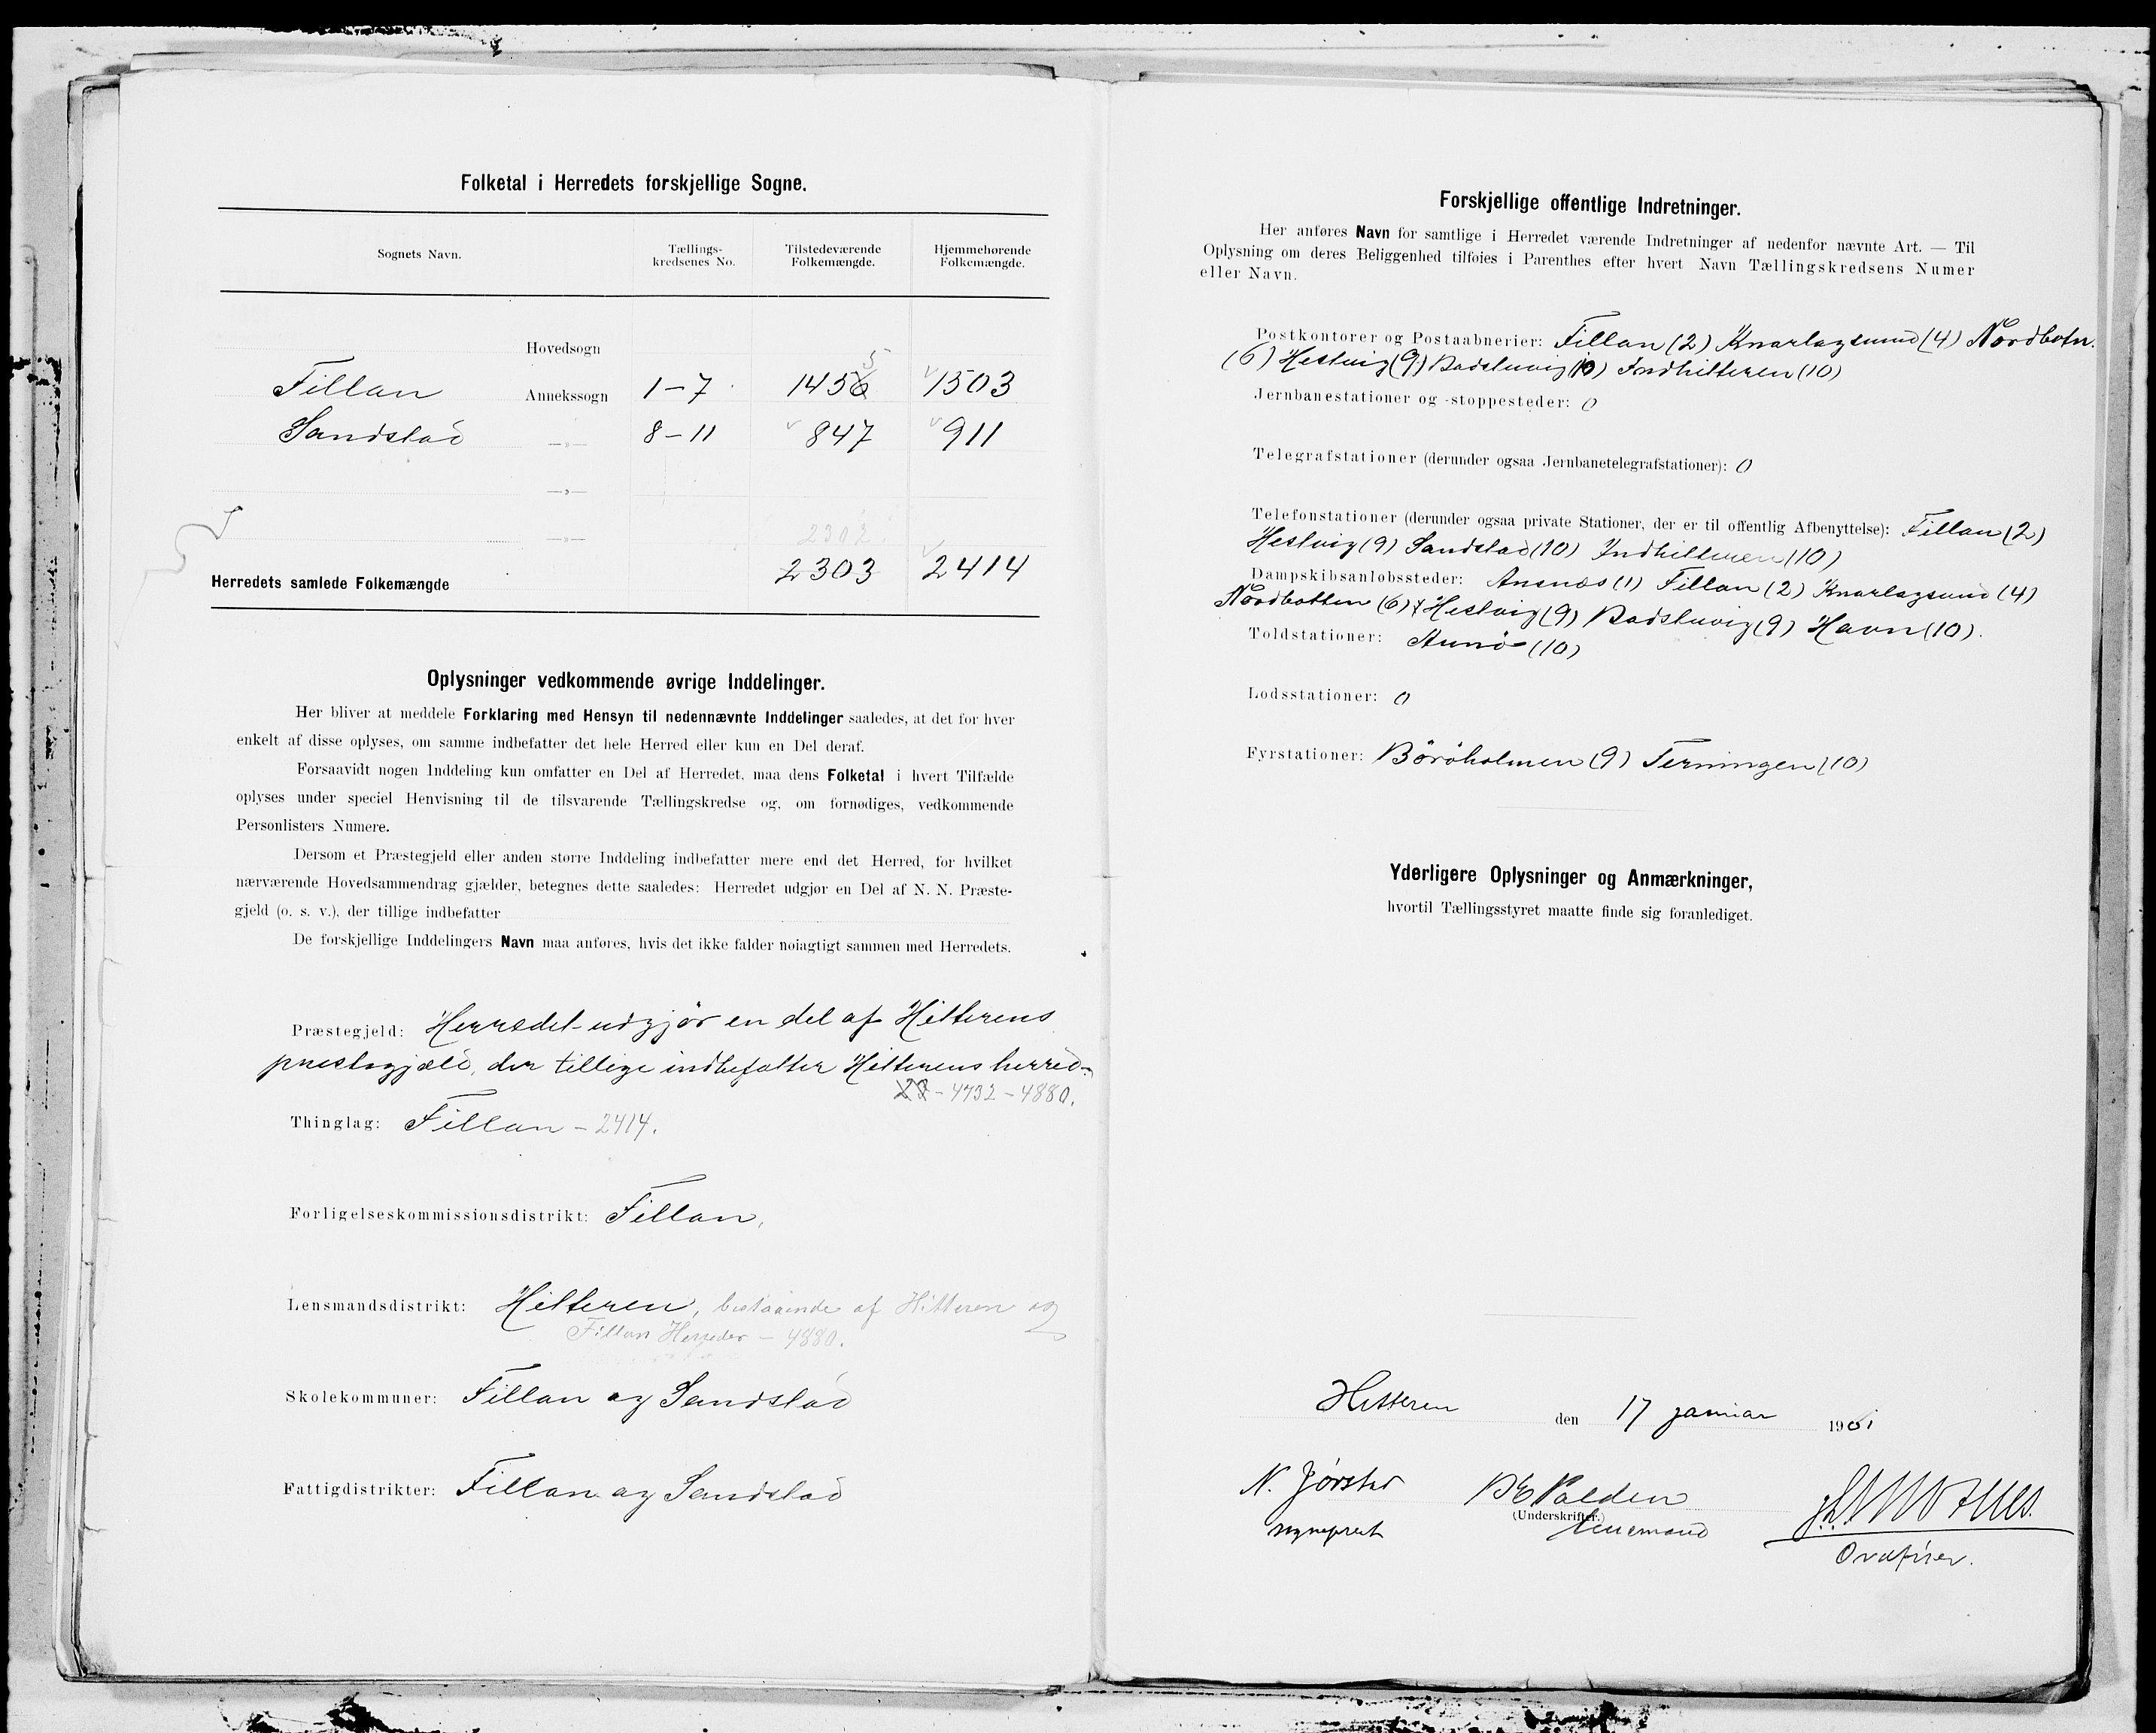 Folketal i Herredets forskjellige Sogne.
Sognets Navn. Tællings-kredsenes No. Tilstedeværende Folkemængde. Hjemmehørende Folkemængde.
Hovedsogn
5
Fillan Annekssogn 1-7 1456 1503
Sandstad —»— 8-11 847 911
—»—
—»— 2302.
Herredets samlede Folkemængde 2303 2414
Oplysninger vedkommende øvrige Inddelinger.
Her bliver at meddele Forklaring med Hensyn til nedennævnte Inddelinger saaledes, at det for hver
enkelt af disse oplyses, om samme indbefatter det hele Herred eller kun en Del deraf.
Forsaavidt nogen Inddeling kun omfatter en Del af Herredet, maa dens Folketal i hvert Tilfælde
oplyses under speciel Henvisning til de tilsvarende Tællingskredse og, om fornødiges, vedkommende
Personlisters Numere.
Dersom et Præstegjeld eller anden større Inddeling indbefatter mere end det Herred, for hvilket
nærværende Hovedsammendrag gjælder, betegnes dette saaledes: Herredet udgjør en Del af N. N. Præste-
gjeld (o. s. v.), der tillige indbefatter
De forskjellige Inddelingers Navn maa anføres, hvis det ikke falder nøiagtigt sammen med Herredets.
Præstegjeld: Herredet udgjør en del af Hitterens
prestegjæld, der tillige indbefatter Hitterens herred.
- 4732 - 4880.
Thinglag: Fillan - 2414.
Forligelseskommissionsdistrikt: Fillan,
Lensmandsdistrikt: Hitteren, bestaaende af Hitteren og
Fillan Herreder - 4880.
Skolekommuner: Fillan og Sandstad
Fattigdistrikter: Fillan og Sandstad
Forskjellige offentlige Indretninger.
Her anføres Navn for samtlige i Herredet værende Indretninger af nedenfor nævnte Art. — Til
Oplysning om deres Beliggenhed tilføies i Parenthes efter hvert Navn Tællingskredsens Numer
eller Navn.
Postkontorer og Postaabnerier: Fillan (2) Knarlagsund (4) Nordbotn.
(6) Hestvig (9) Badstuvig (10) Indhitteren (10)
Jernbanestationer og -stoppesteder: 0
Telegrafstationer (derunder ogsaa Jernbanetelegrafstationer): 0
Telefonstationer (derunder ogsaa private Stationer, der er til offentlig Afbenyttelse): Fillan (2)
Hestvig (9) Sandstad (10) Indhitteren (10)
Dampskibsanløbssteder: Ansnæs (1) Fillan (2) Knarlagsund (4)
Nordbotten (6) Hestvig (9) Badstuvig (9) Havn (10).
Toldstationer: Aunø (10)
Lodsstationer: 0
Fyrstationer: Börøholmen (9) Terningen (10)
Yderligere Oplysninger og Anmærkninger,
hvortil Tællingsstyret maatte finde sig foranlediget.
Hitteren den 17 januar 1901
N. Jørstad
sogneprest
(Underskrifter.)
lensmand
Ordfører.